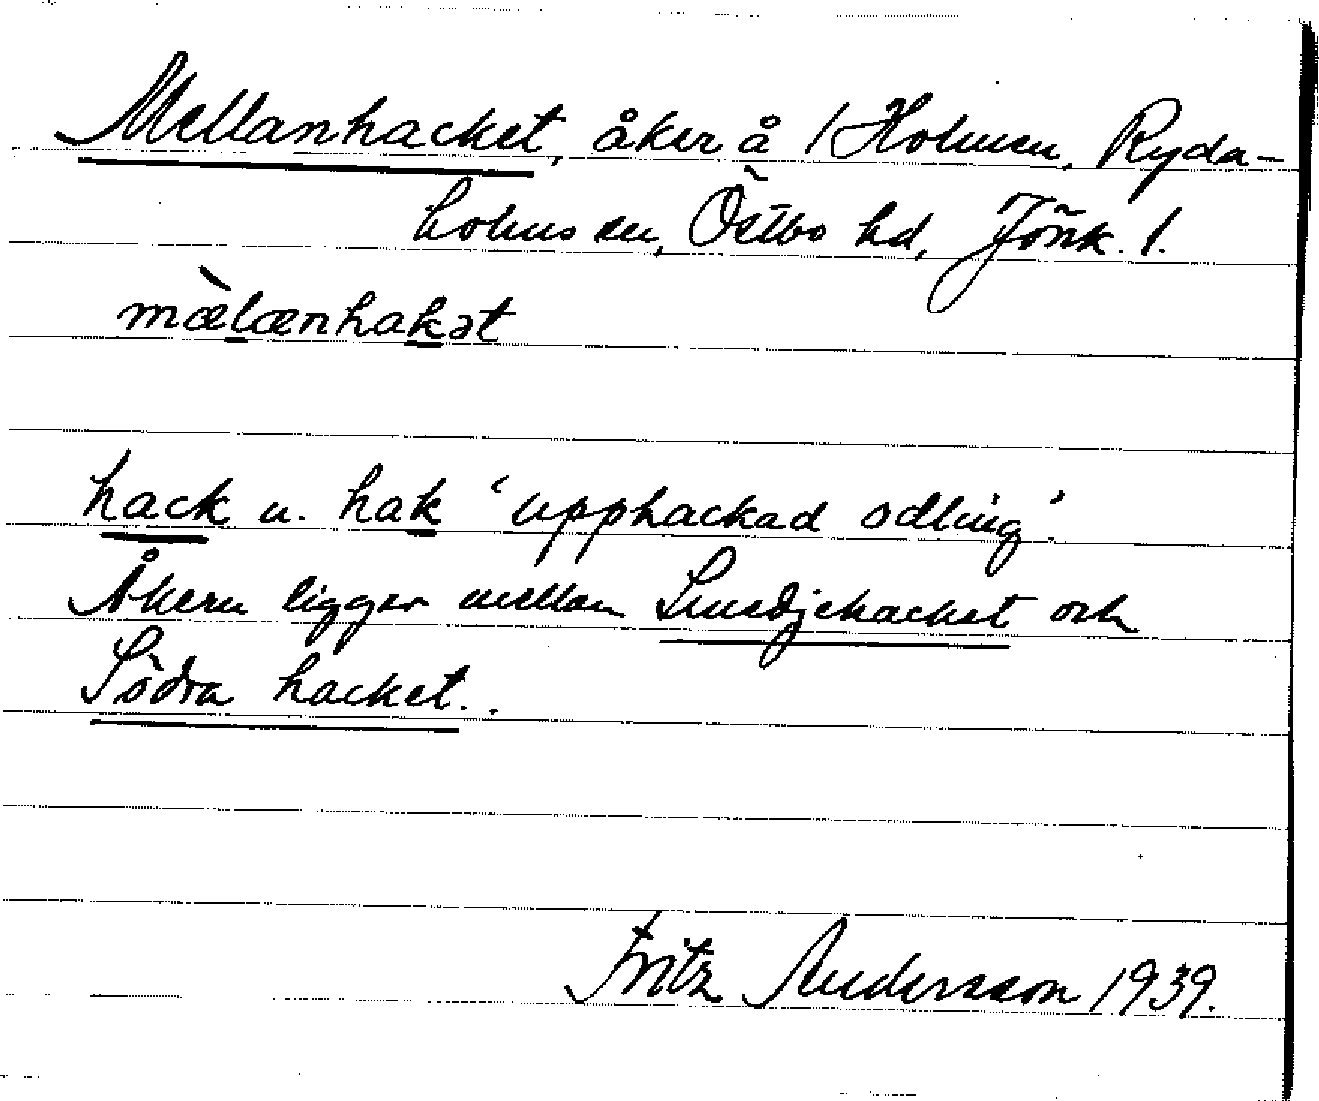 Mellanhacket, åker å 1 Holmen, Ryda-
holms sn, Östbo hd, Jönk. l.
mæ̀lænhakət
hack n. hak 'upphackad odling'.
Åkern ligger mellan Smedjehacket och
Södra hacket.
Fritz Andersson 1939.